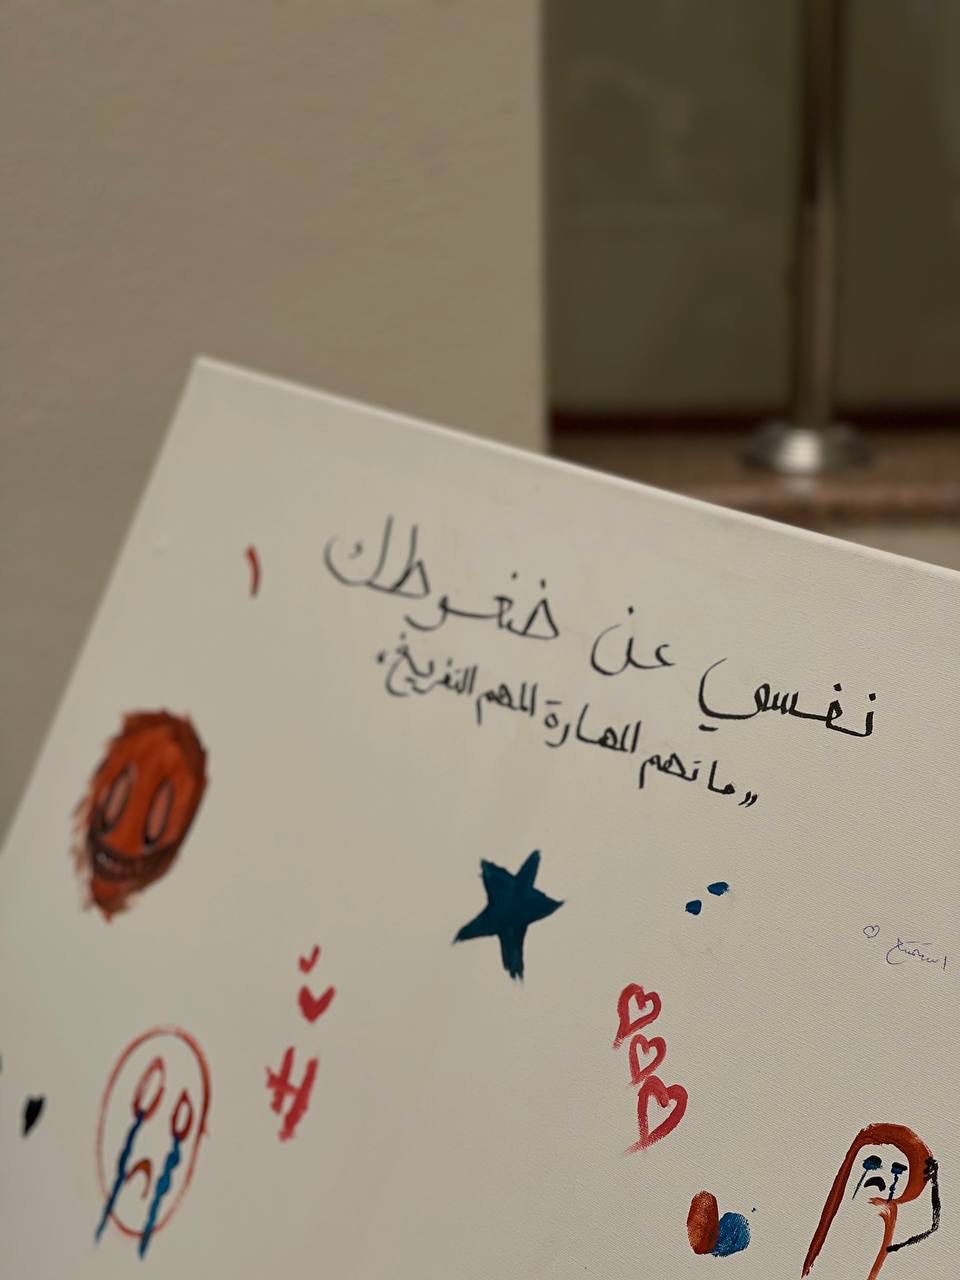 نفسي عن ضغوطك
"ماتهم المهارة المهم التفريغ"
استمتع ♡